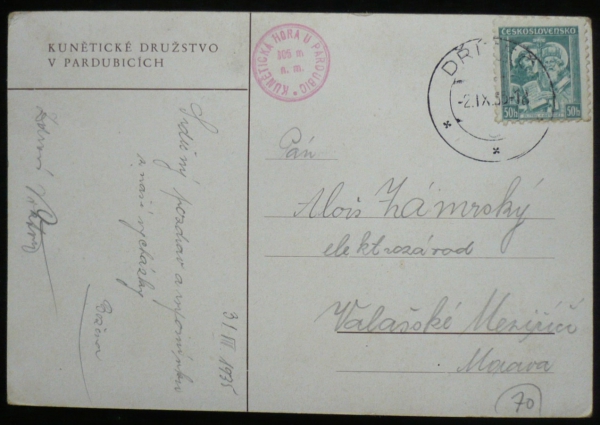 KUNĚTICKÉ DRUŽSTVO
V PARDUBICÍCH
KUNĚTICKÁ HORA U PARDUBIC
305 m
n. m.
ČESKOSLOVENSKO
50h 50h
-2.IX.35-18
Srdečný pozdrav a vzpomínku
z naší vycházky
Božena
31/VIII 1935
Pán
Alois Zámrský
elektrozávod
Valašské Meziříčí
Morava
70